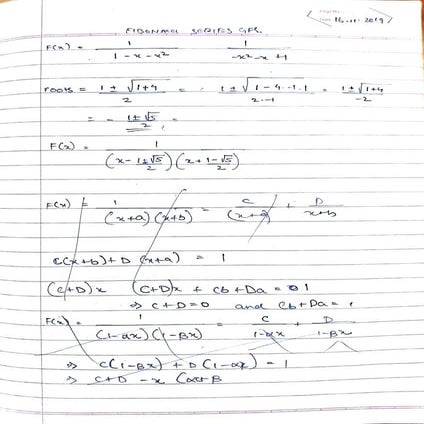 14.11.2019
FIBONACCI SERIES GFs.
F(x) = 1/(1 - x - x²)   1/(-x² - x + 1)
roots = (1 ± √(1+4))/2 = (1 ± √(1 - 4·-1·1))/(2·-1) = (1 ± √(1+4))/(-2)
= - (1 ± √5)/2 =
F(x) = 1/((x - (1±√5)/2)(x + (1-√5)/2))
F(x) = 1/((x+a)(x+b)) = C/(x+a) + D/(x+b)
C(x+b) + D(x+a) = 1
(C+D)x (C+D)x + Cb + Da = 1
⇒ C+D = 0 and Cb + Da = 1
F(x) = 1/((1-αx)(1-βx)) = C/(1-αx) + D/(1-βx)
⇒ C(1-βx) + D(1-αx) = 1
⇒ C+D - x